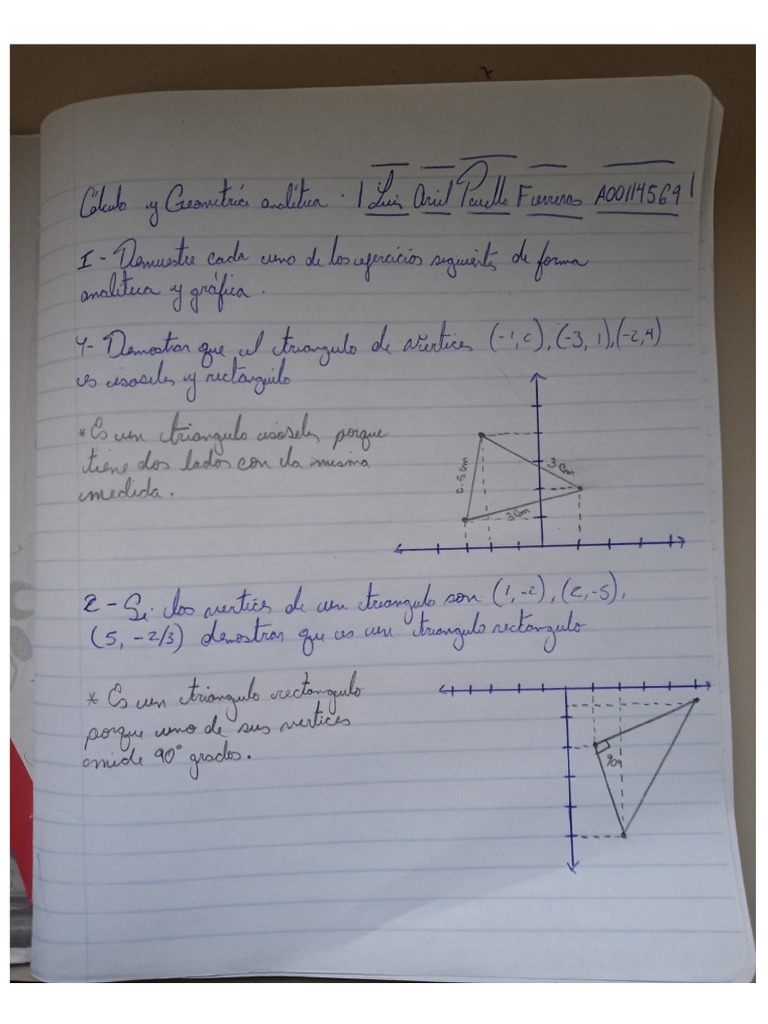 Cálculo y Geometría analítica. | Luis Ariel Fierreras A00114569 |
I - Demuestre cada uno de los ejercicios seguientes de forma
analitica y gráfica.
1- Demostrar que el triangulo de vertices (-1, 2), (-3, 1), (-2, 4)
es isoseles y rectangulo
* Es un triangulo isoseles porque
tiene dos lados con la misma
medida.
2.5cm
3cm
3cm
2 - Si los vertices de un triangulo son (1, -2), (2, -5),
(5, -2/3) demostrar que es un triangulo rectangulo
* Es un triangulo rectangulo
porque uno de sus vertices
mide 90° grados.